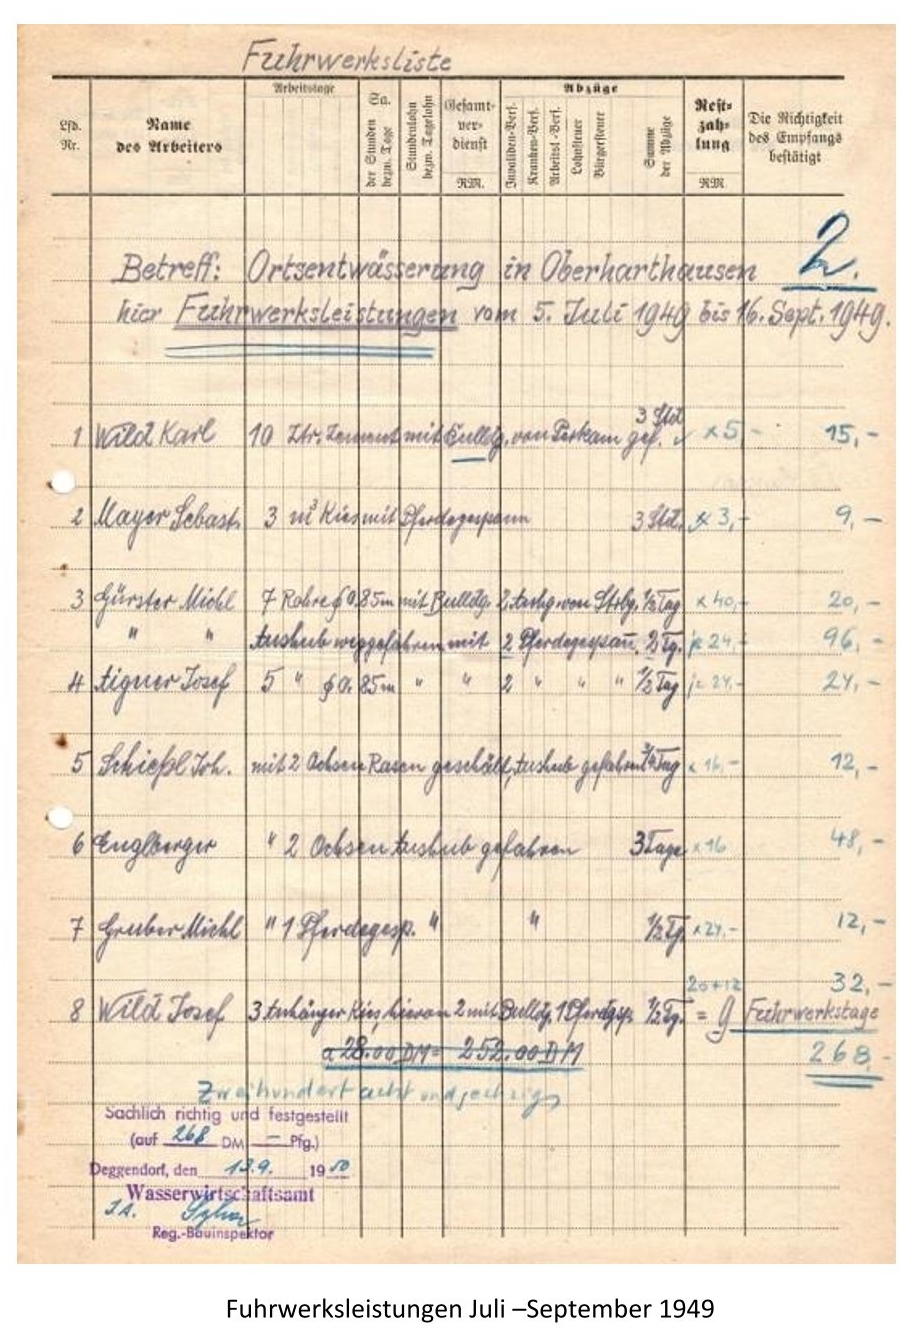 Fuhrwerksliste
Lfd. Nr.
Name des Arbeiters
Arbeitstage
Sa. der Stunden bezw. Tage
Stundenlohn bezw. Tagelohn
Gesamt-ver-dienst
RM.
Abzüge
Invaliden-Vers.
Kranken-Vers.
Arbeitsl.-Vers.
Lohnsteuer
Bürgersteuer
Summe der Abzüge
Rest-zah-lung
RM.
Die Richtigkeit des Empfangs bestätigt
2.
Betreff: Ortsentwässerung in Oberharthausen
hier Fuhrwerksleistungen vom 5. Juli 1949 bis 16. Sept. 1949.
1 Wild Karl 10 Ztr. Zement mit Bulldg. von Perkam gef. 3 Std. x 5,- 15,-
2 Mayer Sebast. 3 m³ Kies mit Pferdegespann 3 Std. x 3,- 9,-
3 Gürster Michl 7 Rohre 0.85m mit Bulldg. 2 von Strbg. ½ Tag x 40,- 20,-
" " Aushub weggefahren mit 2 Pferdegespan. 2 Tg. je 24,- 96,-
4 Aigner Josef 5 " 0.85m " " 2 " " " ½ Tag je 24,- 24,-
5 Schießl Joh. mit 2 Ochsen Rasen geschält, Aushub gefahren ¾ Tag x 16,- 12,-
6 Englberger " 2 Ochsen Aushub gefahren 3 Tage x 16 48,-
7 Gruber Michl " 1 Pferdegesp. " " ½ Tg. x 24,- 12,-
20+12 32,-
8 Wild Josef 3 Anhänger Kies, hievon 2 mit Bulldg. 1 Pferdgsp. ½ Tg. = 9 Fuhrwerkstage
a 28.00 DM = 252.00 DM 268.-
Zweihundertachtundsechzig
Sachlich richtig und festgestellt
(auf 268 DM — Pfg.)
Deggendorf, den 13.9. 1950
Wasserwirtschaftsamt
I.A.
Reg.-Bauinspektor
Fuhrwerksleistungen Juli –September 1949